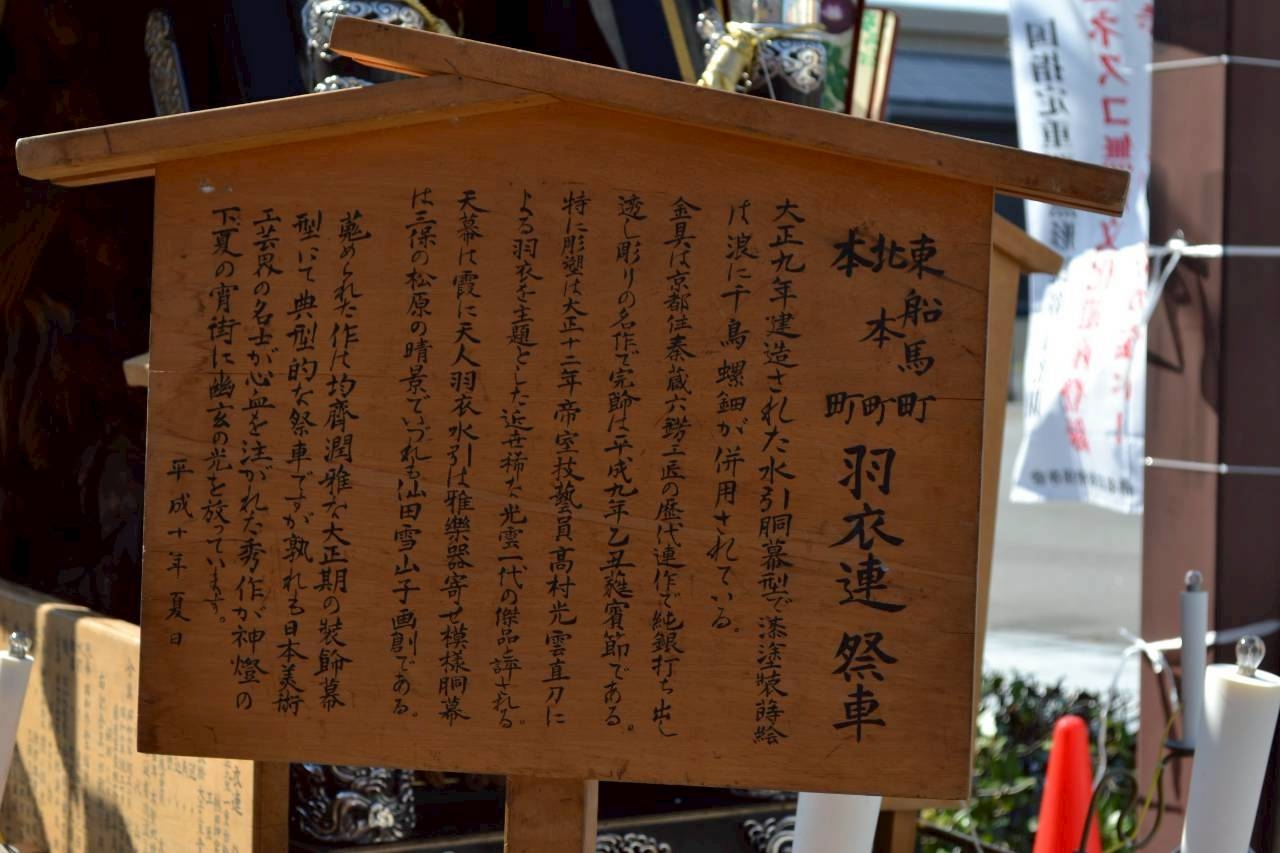 東船馬町
北本町
本町
羽衣連 祭車
大正九年建造された水引胴幕型で漆塗装蒔絵
は浪に千鳥螺鈿が併用されている。
金具は京都住秦蔵六餝工匠の歴代連作で純銀打ち出し
透し彫りの名作で完餝は平成九年乙丑蕤賓節である。
特に彫塑は大正十二年帝室技藝員高村光雲直刀に
よる羽衣を主題とした近世稀な光雲一代の傑品と評される。
天幕は霞に天人羽衣水引は雅樂器寄せ模様胴幕
は三保の松原の晴景でいづれも仙田雪山子画劃である。
蒐められた作は均齊潤雅な大正期の装飾幕
型にて典型的な祭車ですが孰れも日本美術
工芸界の名士が心血を注がれた秀作が神燈の
下夏の宵街に幽玄の光を放っています。
平成十年夏日
国指定重
ネスコ無